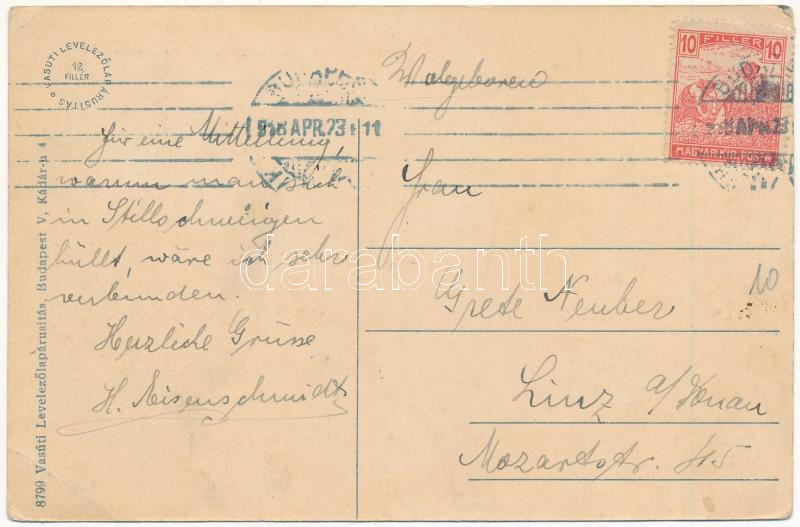 VASUTI LEVELEZŐLAPÁRUSITÁS
12
FILLÉR
BUDAPEST
918 APR. 23
11
10 FILLÉR 10
918 APR. 23
MAGYAR KIR. POSTA
8799 Vasúti Levelezőlapárusitás, Budapest V, Kádár-u 4
für eine Mitteilung,
warum man sich
in Stillschweigen
hüllt, wäre ich sehr
verbunden.
Herzliche Grüsse
H. Eisenschmidt
Wolgeboren
Frau
Grete Neuber
10
Linz a/Donau
Mozartstr. 45
darabanth